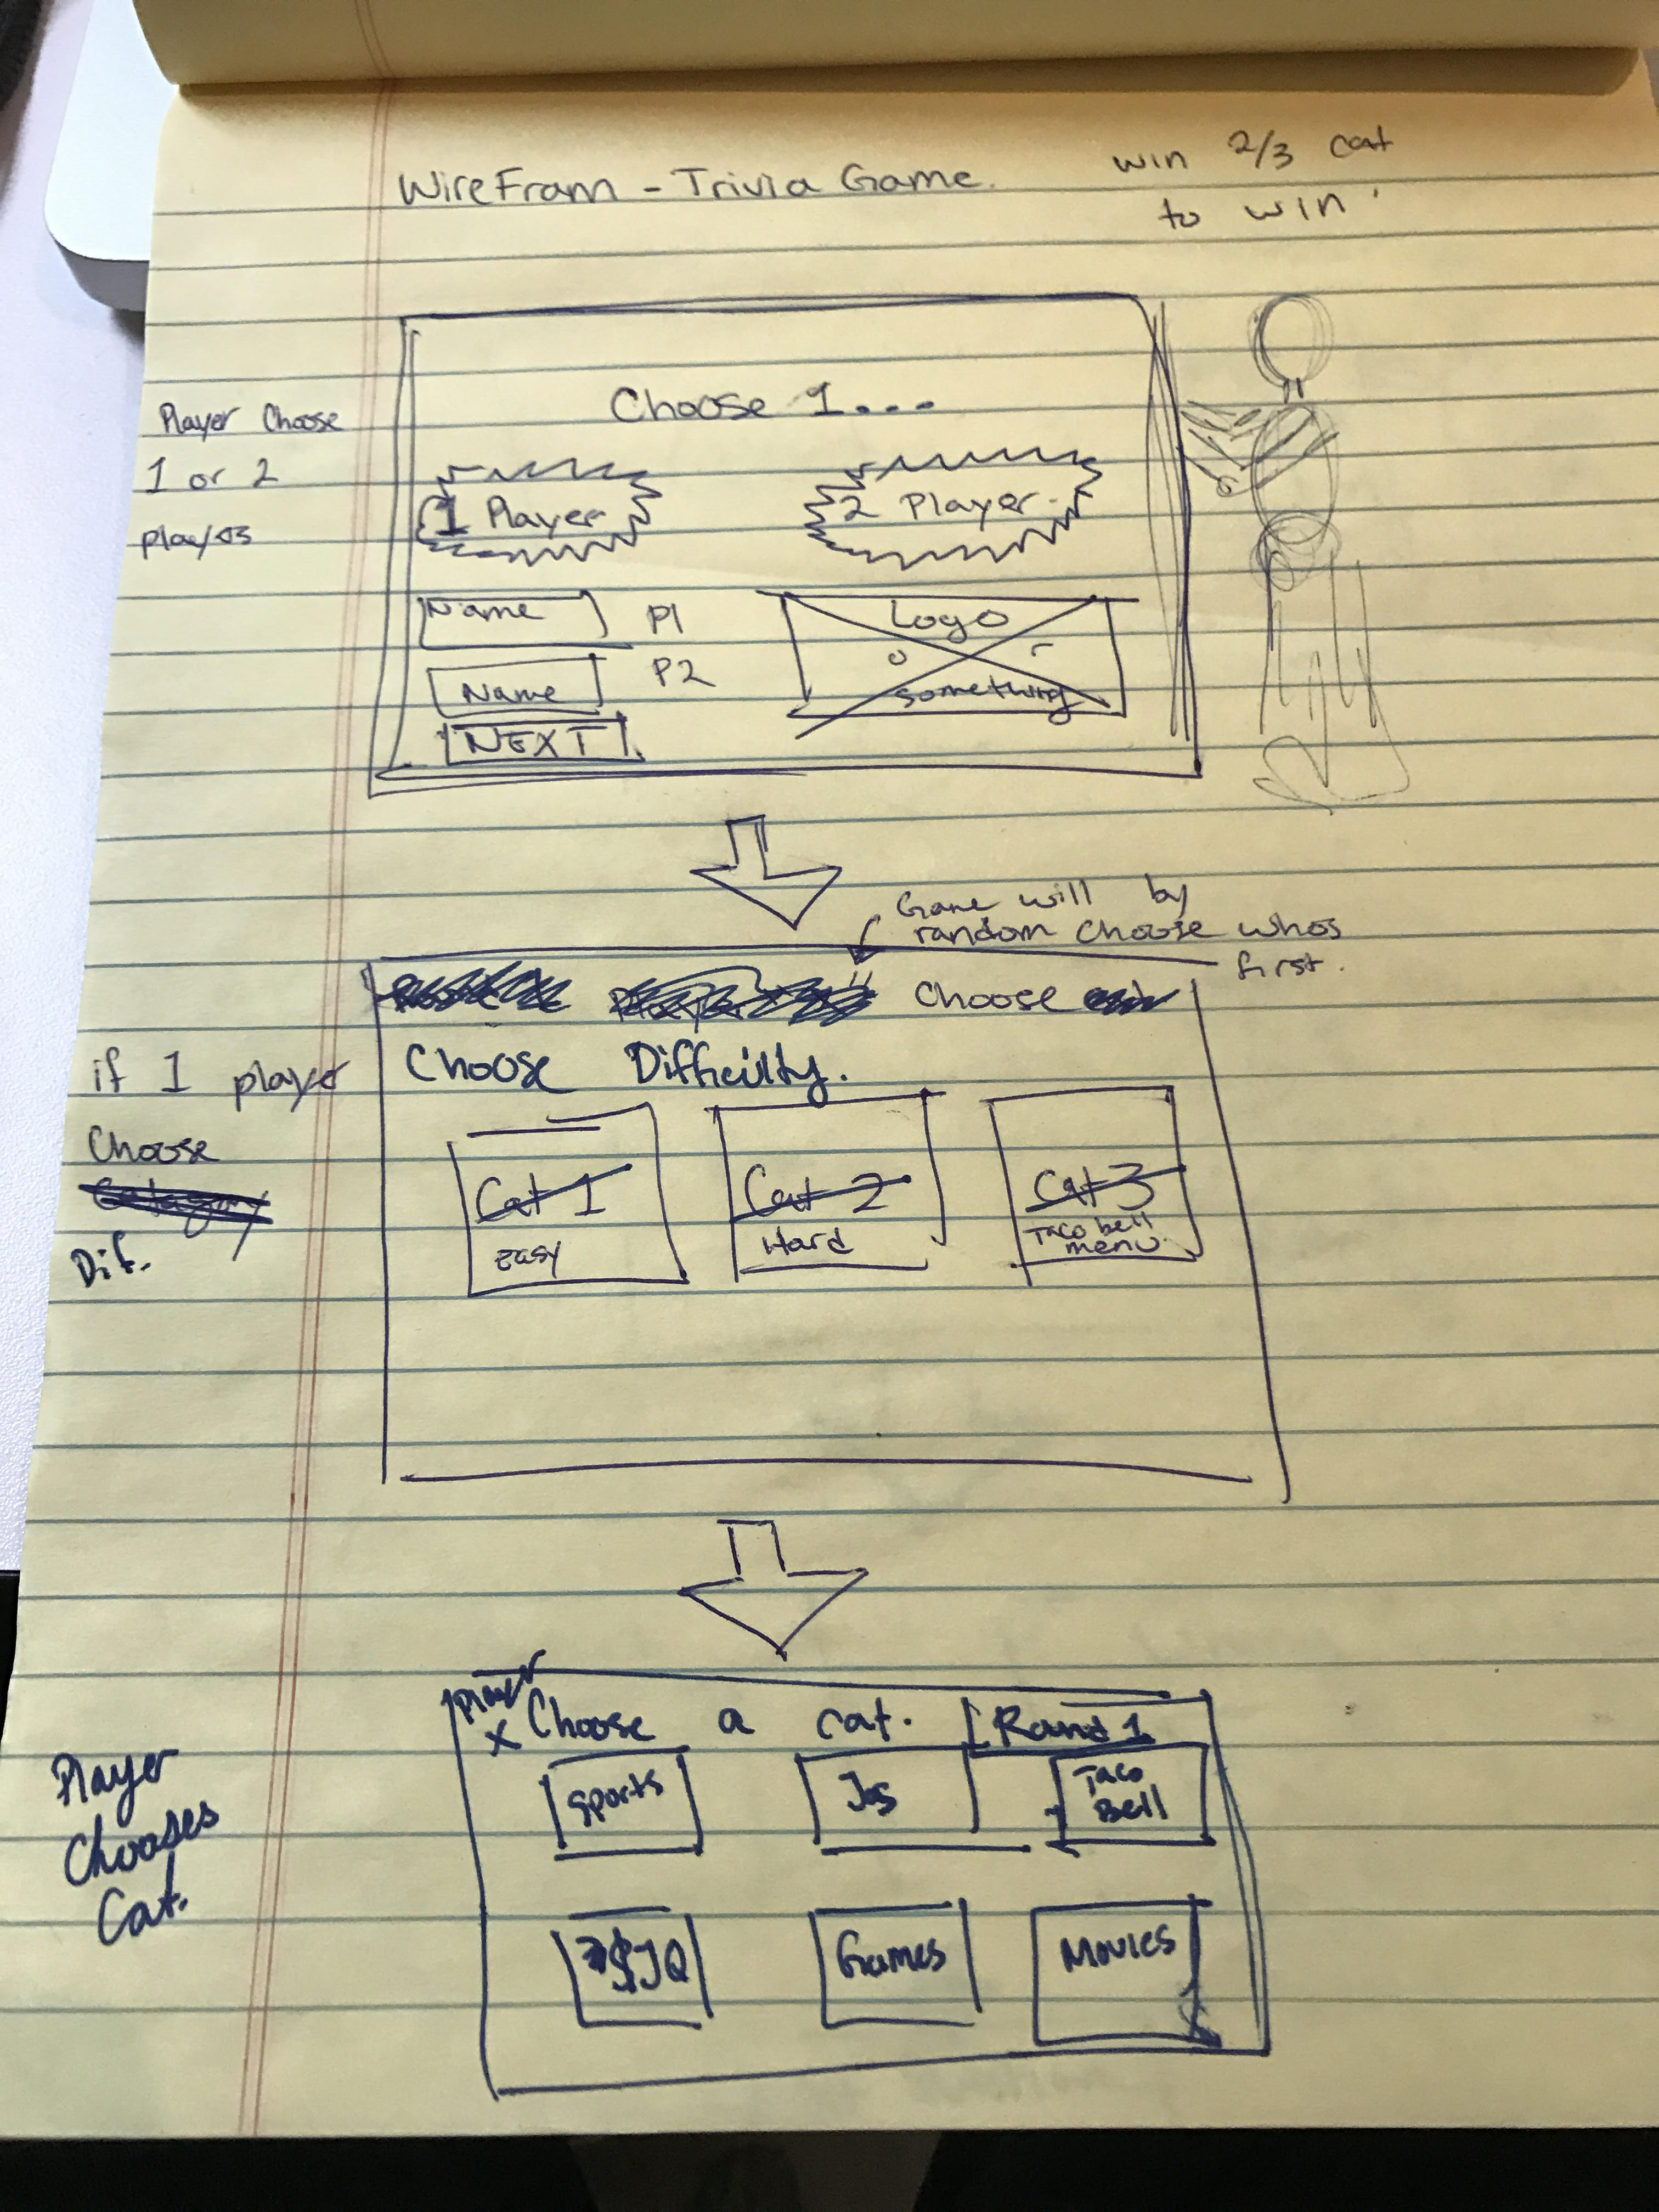 WireFram - Trivia Game.
win 2/3 cat
to win
Player Choose
1 or 2
Choose 1...
1 Player
2 Player
Name P1
Name P2
NEXT
Logo
or
something
Game will by
random choose whos
first.
Choose
if 1 player
Choose
Dif.
Choose Difficulty.
Cat 1
Easy
Cat 2
Hard
Cat 3
Taco bell
menu
Player
x Choose a cat.
Round 1
Player
Chooses
Cat.
Sports
Taco
Bell
JQ
Games
Movies